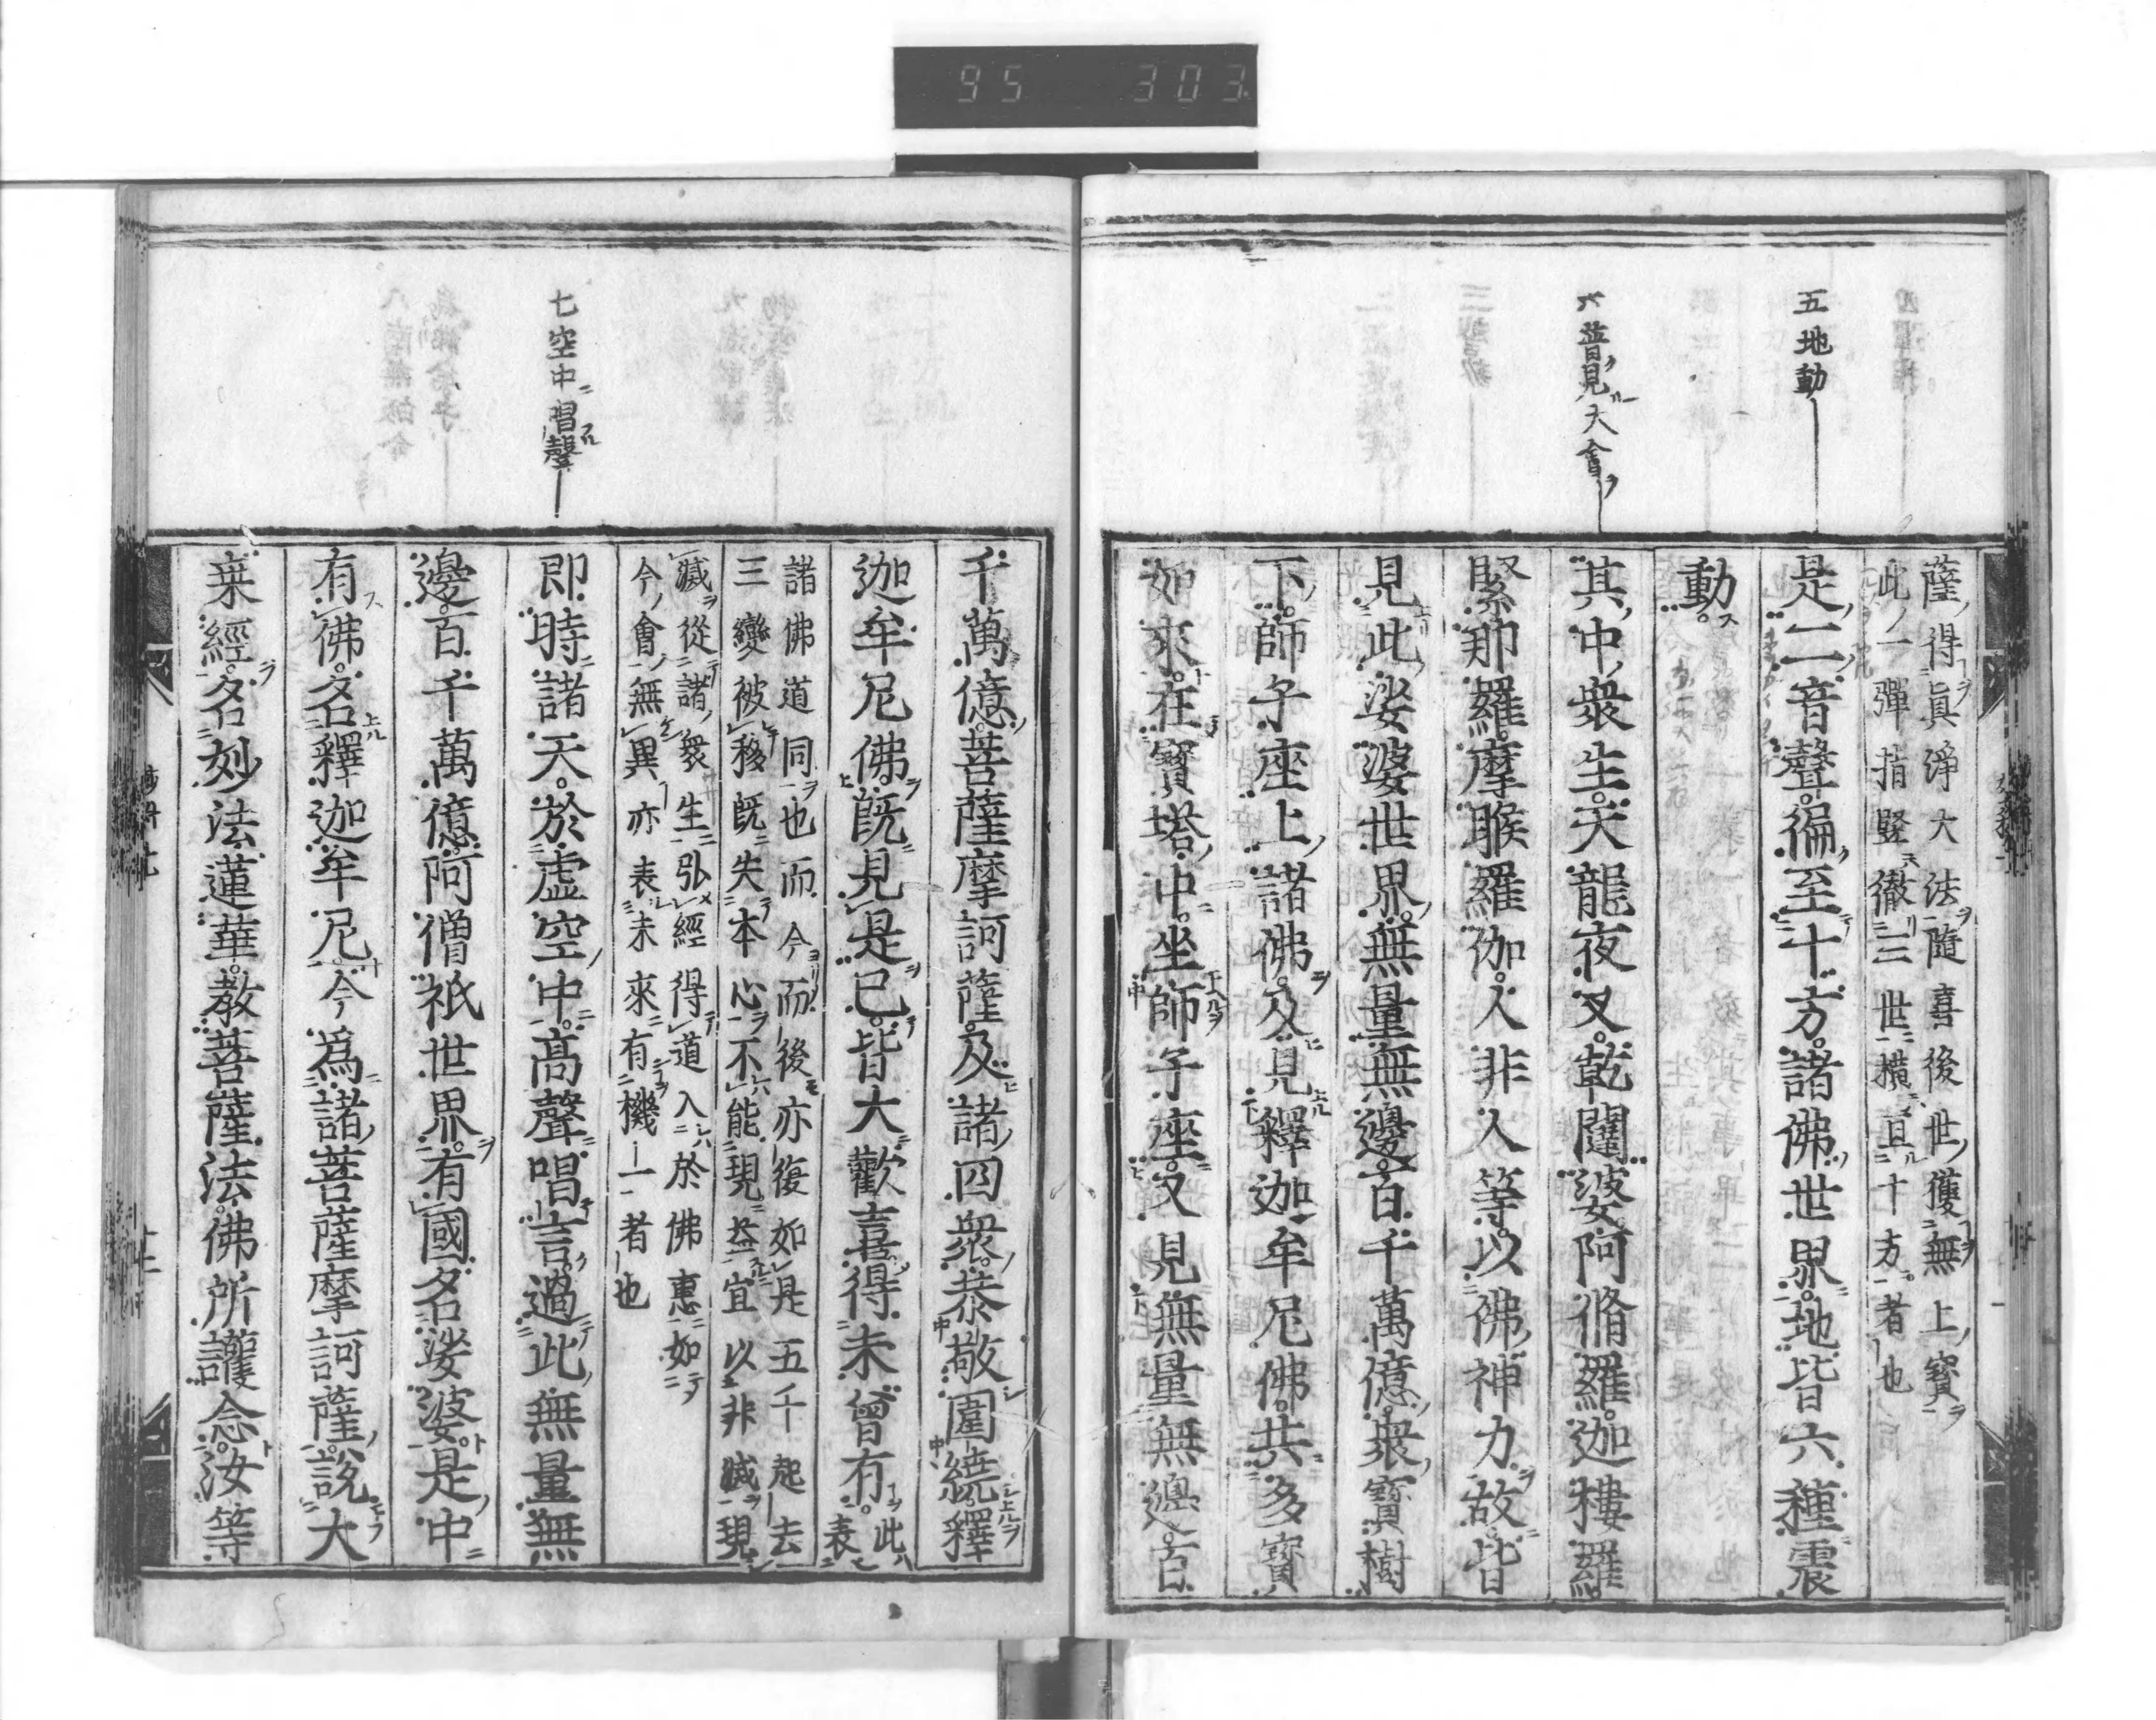 95 303
五地動
六普見大會
薩得眞淨大法隨喜後世獲無上寶
此一彈指竪徹三世橫亘十方者也
是二音聲徧至十方諸佛世界地皆六種震
動
其中衆生天龍夜叉乾闥婆阿脩羅迦樓羅
緊那羅摩睺羅伽人非人等以佛神力故皆
見此娑婆世界無量無邊百千萬億衆寶樹
下師子座上諸佛及見釋迦牟尼佛共多寶
如來在寶塔中坐師子座又見無量無邊百
七空中唱聲
千萬億菩薩摩訶薩及諸四衆恭敬圍繞釋
迦牟尼佛既見是已皆大歡喜得未曾有此
表
諸佛道同也而今而後亦復如是五千起去
三變被移既失本心不能現益宜以非滅現
滅從諸衆生弘經得道入於佛惠如
今會無異亦表未來有機一者也
即時諸天於虛空中高聲唱言過此無量無
邊百千萬億阿僧祇世界有國名娑婆是中
有佛名釋迦牟尼今爲諸菩薩摩訶薩說大
乗經名妙法蓮華教菩薩法佛所護念汝等